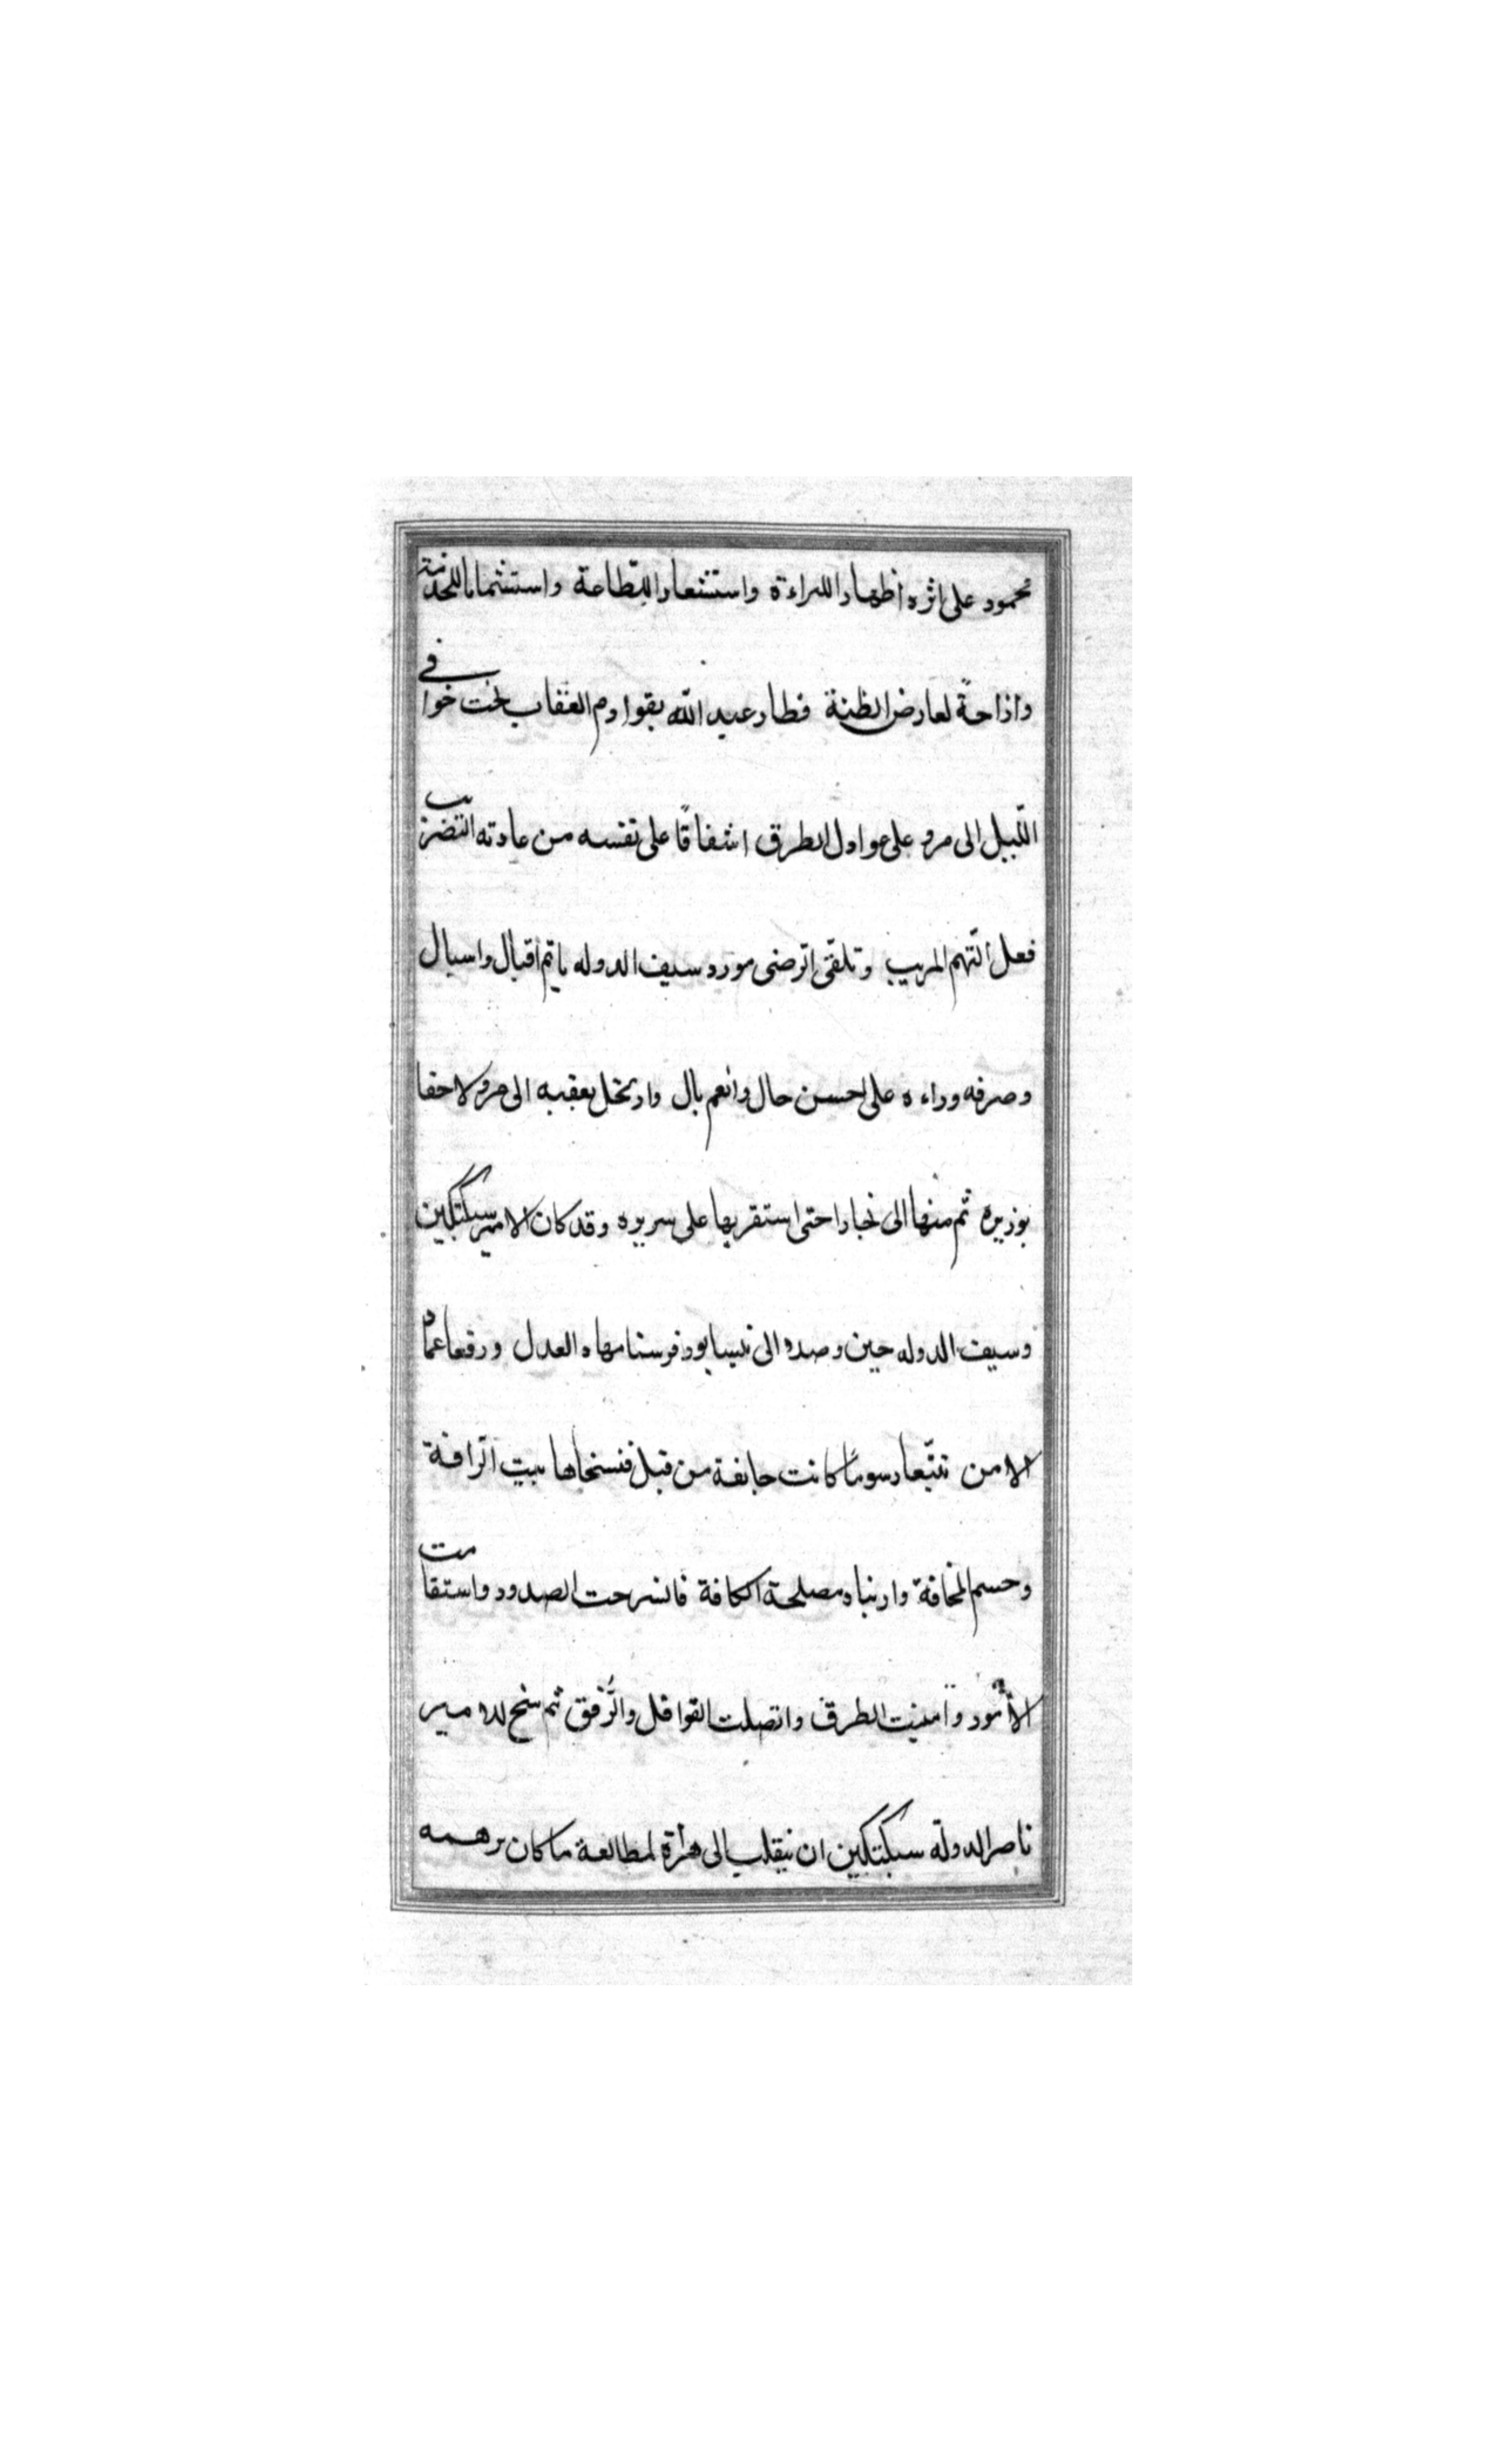 محمود على اثره اظهارا للبراءة واستشعارا للطاعة واستثمارا للخدمة
وازاحةً لعارض الظنة فطار عبد الله بقوادم العقاب تحت خوافي
اللّيل الى مرو على عوادل الطرق اشفاقًا على نفسه من عادته التضريب
فعل المتّهم المريب وتلقّى الرضى مورد سيف الدوله باتم اقبال واسبال
وصرفه وراءه على احسن حال وانعم بال وارتحل بعقبه الى مرو لاحقا
بوزيره ثم منها الى بخارا حتى استقر بها على سريره وقد كان الامير سبكتكين
وسيف الدوله حين وصدوا الى نيسابور فرسنا مهاد العدل ورفعا عماد
الامن تتبّعا رسومًا كانت حايفة من قبل فنسخاها بيت الرافة
وحسم المخافة وارتياد مصلحة الكافة فانشرحت الصدور واستقامت
الأمور وآمنيت الطرق واتصلت القوافل والرُّفق ثم سنح للامير
ناصر الدولة سبكتكين ان ينقلب الى هراة لمطالعة ما كان برهمه